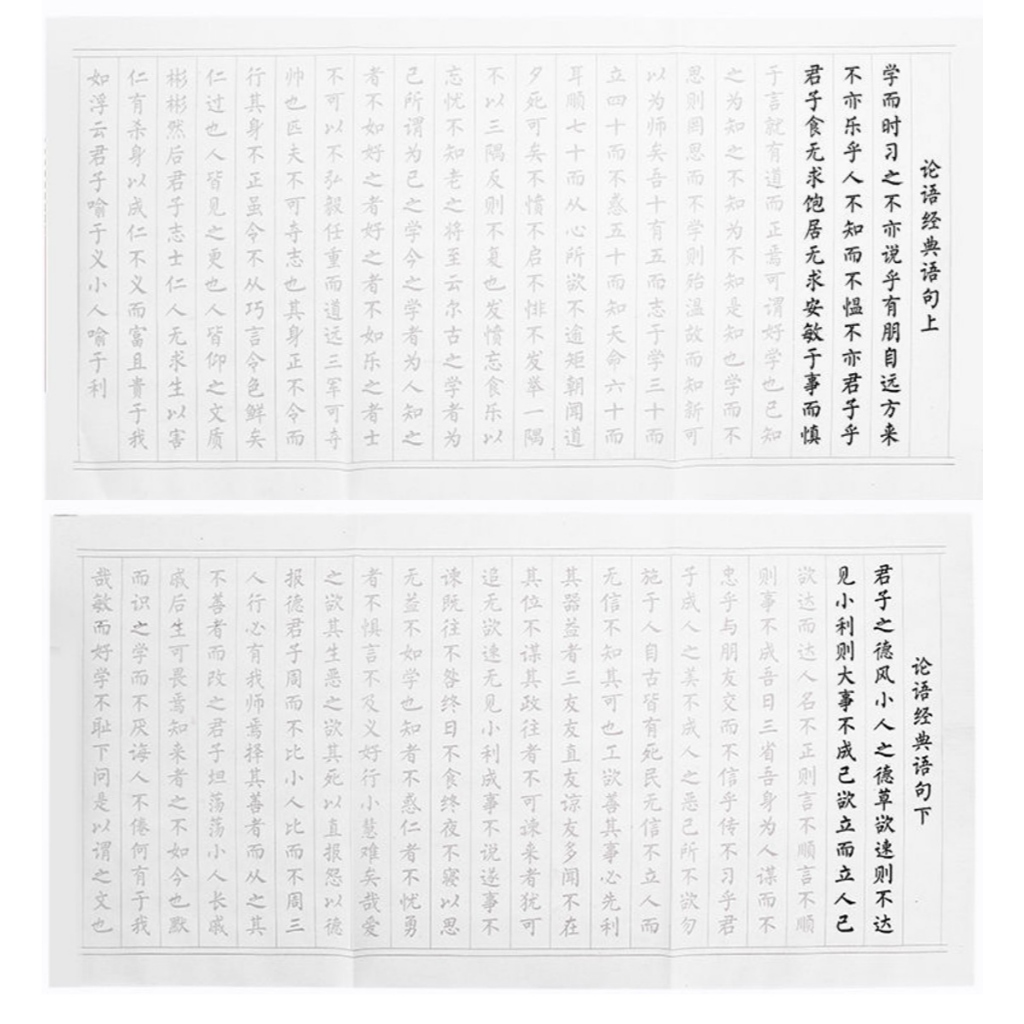 论语经典语句上
学而时习之不亦说乎有朋自远方来
不亦乐乎人不知而不愠不亦君子乎
君子食无求饱居无求安敏于事而慎
于言就有道而正焉可谓好学也已知
之为知之不知为不知是知也学而不
思则罔思而不学则殆温故而知新可
以为师矣吾十有五而志于学三十而
立四十而不惑五十而知天命六十而
耳顺七十而从心所欲不逾矩朝闻道
夕死可矣不愤不启不悱不发举一隅
不以三隅反则不复也发愤忘食乐以
忘忧不知老之将至云尔古之学者为
己所谓为己之学今之学者为人知之
者不如好之者好之者不如乐之者士
不可以不弘毅任重而道远三军可夺
帅也匹夫不可夺志也其身正不令而
行其身不正虽令不从巧言令色鲜矣
仁过也人皆见之更也人皆仰之文质
彬彬然后君子志士仁人无求生以害
仁有杀身以成仁不义而富且贵于我
如浮云君子喻于义小人喻于利
论语经典语句下
君子之德风小人之德草欲速则不达
见小利则大事不成己欲立而立人己
欲达而达人名不正则言不顺言不顺
则事不成吾日三省吾身为人谋而不
忠乎与朋友交而不信乎传不习乎君
子成人之美不成人之恶己所不欲勿
施于人自古皆有死民无信不立人而
无信不知其可也工欲善其事必先利
其器益者三友友直友谅友多闻不在
其位不谋其政往者不可谏来者犹可
追无欲速无见小利成事不说遂事不
谏既往不咎终日不食终夜不寝以思
无益不如学也知者不惑仁者不忧勇
者不惧言不及义好行小慧难矣哉爱
之欲其生恶之欲其死以直报怨以德
报德君子周而不比小人比而不周三
人行必有我师焉择其善者而从之其
不善者而改之君子坦荡荡小人长戚
戚后生可畏焉知来者之不如今也默
而识之学而不厌诲人不倦何有于我
哉敏而好学不耻下问是以谓之文也